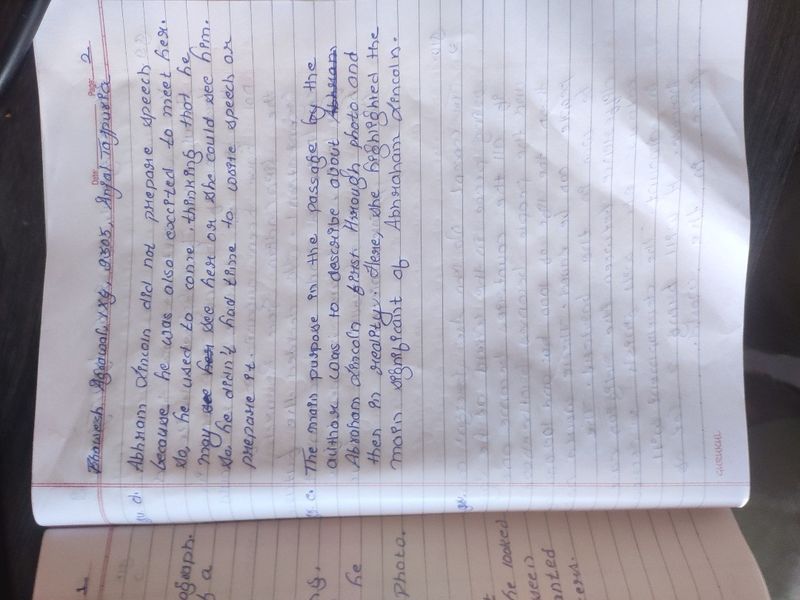 Date
Page 2
Bhawesh Agrawal, XI, 2305, Anjal Tajpuria
qu. d. Abhram Lincoln did not prepare speech
because he was also exccited to meet her.
So, he used to come thinking that he
may see her or she could see him.
So he didn't had time to write speech or
prepare it.
qu. c. The main purpose in the passage by the
author was to describe about
Abraham Lincoln first through photo and
then in reality. Here, she highlighted the
main significant of Abhraham Lincoln.
qu.
GURUKUL
1
agraph.
a
he
photo.
he looked
seen
anted